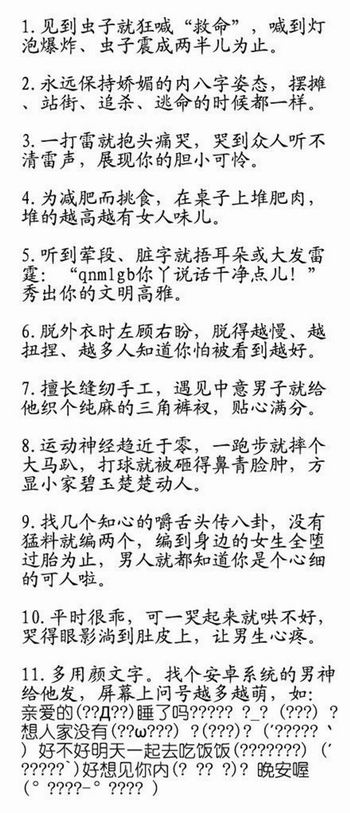 1.见到虫子就狂喊“救命”，喊到灯
泡爆炸、虫子震成两半儿为止。
2.永远保持娇媚的内八字姿态，摆摊
、站街、追杀、逃命的时候都一样。
3.一打雷就抱头痛哭，哭到众人听不
清雷声，展现你的胆小可怜。
4.为减肥而挑食，在桌子上堆肥肉，
堆的越高越有女人味儿。
5.听到荤段、脏字就捂耳朵或大发雷
霆：“qnmlgb你丫说话干净点儿！”
秀出你的文明高雅。
6.脱外衣时左顾右盼，脱得越慢、越
扭捏、越多人知道你怕被看到越好。
7.擅长缝纫手工，遇见中意男子就给
他织个纯麻的三角裤衩，贴心满分。
8.运动神经趋近于零，一跑步就摔个
大马趴，打球就被砸得鼻青脸肿，方
显小家碧玉楚楚动人。
9.找几个知心的嚼舌头传八卦，没有
猛料就编两个，编到身边的女生全堕
过胎为止，男人就都知道你是个心细
的可人啦。
10.平时很乖，可一哭起来就哄不好，
哭得眼影淌到肚皮上，让男生心疼。
11.多用颜文字。找个安卓系统的男神
给他发，屏幕上问号越多越萌，如：
亲爱的(??Д??)睡了吗????? ?_? (???) ?
想人家没有(??ω???) ?(???)? (´????? `
) 好不好明天一起去吃饭饭(???????) (´
?????`)好想见你内(? ?? ?)? 晚安喔
(° ????-° ???? )